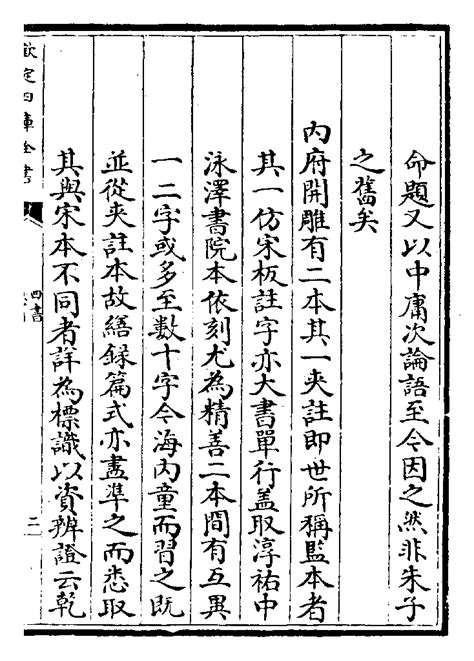 命題又以中庸次論語至今因之然非朱子
之舊矣
內府開雕有二本其一夾註即世所稱監本者
其一仿宋板註字亦大書單行蓋取淳祐中
泳澤書院本依刻尤為精善二本間有互異
一二字或多至數十字今海內童而習之既
並從夾註本故繕録篇式亦盡準之而悉取
其與宋本不同者詳為標識以資辨證云乾
欽定四庫全書
四書
三